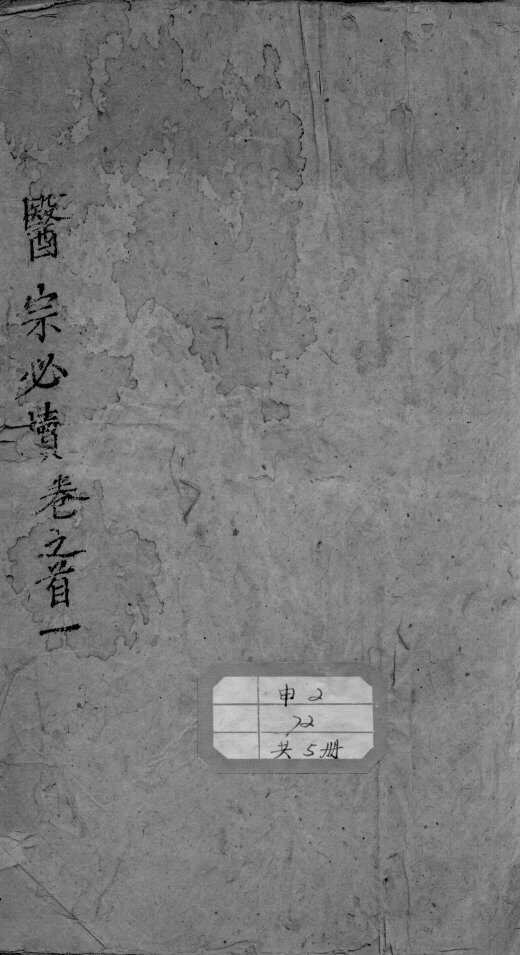 醫宗必讀卷之首一
申2
72
共5册